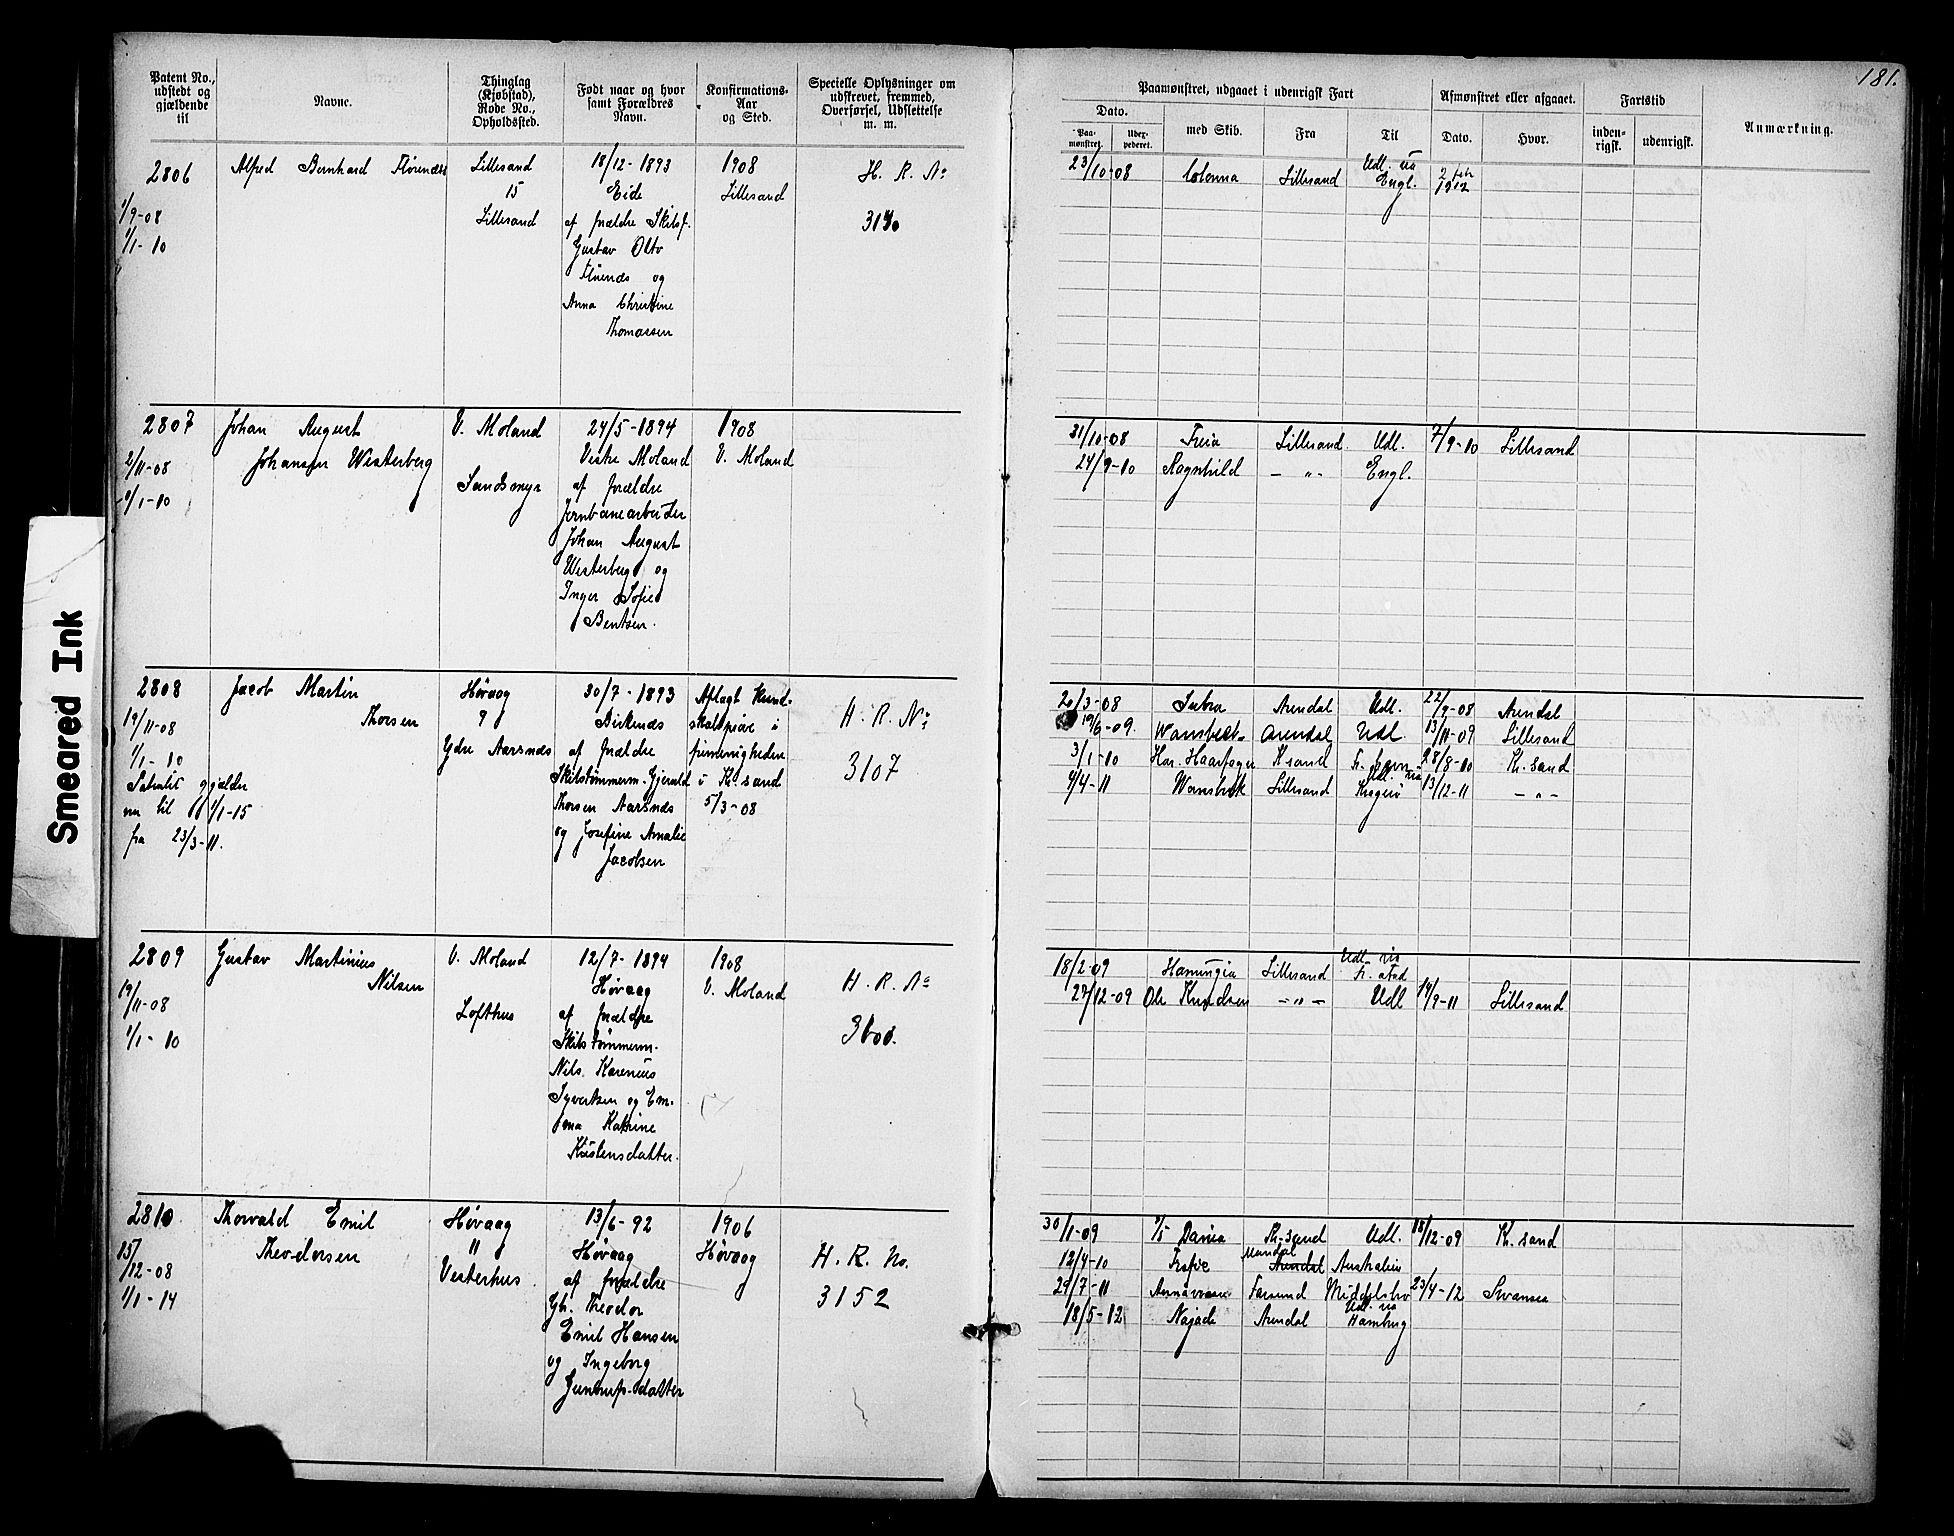 181.
Patent No., udstedt og gjældende til
Navne.
Thinglag (Kjøbstad), Rode No., Opholdssted.
Født naar og hvor samt Forældres Navn.
Konfirmations-Aar og Sted.
Specielle Oplysninger om udskrevet, fremmed, Overførsel, Udslettelse m. m.
Paamønstret, udgaaet i udenrigsk Fart
Dato.
Paamønstret.
med Skib.
Fra
Til
Afmønstret eller afgaaet.
Dato.
Hvor.
Fartstid
inden-rigsk.
udenrigsk.
Anmærkning.
2806
1/9-08
1/1-10
Alfred Bernhard
Lillesand
15
Lillesand
18/12-1893
Eide
af forældre Skibsf.
Gustav Otto
og
Anna Christine
Thomassen
1908
Lillesand
H. R. No
23/10-08 Lillesand Udl. via Engl. 2 feb 1912
2807
2/11-08
1/1-10
Johan August
Johansen Westerberg
V. Moland
Sandsmyr
24/5-1894
Vestre Moland
af forældre
Jernbanearbeider
Johan August
Westerberg og
Inger Sofie
Bentsen.
1908
V. Moland
31/10-08 Freia Lillesand Udl. 7/9-10 Lillesand
24/9-10 Ragnhild — " — Engl.
2808
19/11-08
1/1-10
Patentet gjælder
nu til 1/1-15
fra 23/3-11.
Jacob Martin
Thorsen
Høvaag
9
Ydre Aarsnæs
30/7-1893
Birkenæs
af forældre
Skibstømmerm. Gjerald
Thorsen Aarsnæs
og Josefine Amalie
Jacobsen
Aflagt Kund-
skabsprøve i
i Kr.sand
5/3-08
H. R. No
3107
Arendal Udl. 22/9-08 Arendal
19/6-09. Wansbek Arendal Udl. 13/11-09 Lillesand
3/1-10 Har. Haarfager K.sand 28/8-10 Kr.sand
4/4-11 Wansbek Lillesand Udl. via Kragerø 13/12-11 — " —
2809
19/11-08
1/1-10
Gustav Martinius
Nilsen
V. Moland
Lofthus
12/7-1894
Høvaag
af forældre
Skibstømmerm.
Nils Karenius
Syvertsen og Em-
ma Katrine
Kristensdatter.
1908
V. Moland
H. R. No
18/2-09 Lillesand Udl. via Fr.stad
27/12-09 Ole Knudsen — " — Udl 14/9-11 Lillesand
2810
15/12-08
1/1-14
Thorvald Emil
Theodorsen
Høvaag
11
Vesterhus
13/6-92
Høvaag
af forældre
Gh. Theodor
Emil Hansen
og Ingeborg
1906
Høvaag
H. R. No.
3152
30/1-09 Dania Udl. 18/12-09 Kr.sand
12/4-10 Mandal Arendal Australien
29/7-11 Farsund Middelsbro 23/4-12 Swansea
18/5-12 Najade Arendal Udl. via Hamburg
Smeared Ink